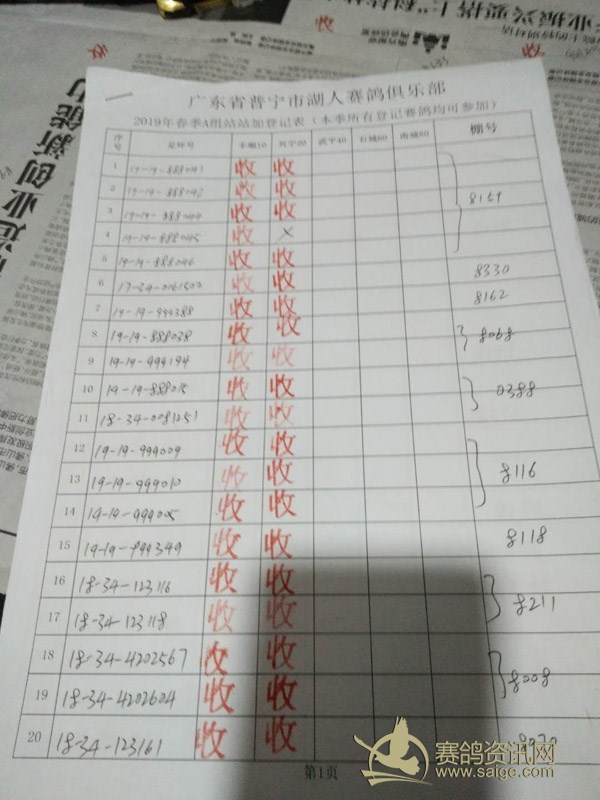 广东省普宁市湖人赛鸽俱乐部
2019年春季A组站站加登记表（本季所有登记赛鸽均可参加）
序号 足环号 棚号
1 19-19-888041 收 收
2 19-19-888042 收 收 8159
3 19-19-888044 收 收
4 19-19-888045 收 ×
5 19-19-888046 收 收 8330
6 收 收 8162
7 19-19-999388 收 收
8 19-19-888038 收 收 8068
9 19-19-999194 收 收
10 19-19-888015 收 收 0388
11 18-34-0081251 收 收
12 19-19-999009 收 收
13 19-19-999010 收 收 8116
14 19-19-999005 收 收
15 19-19-999349 收 收 8118
16 18-34-123116 收 收
17 18-34-123118 收 收 8211
18 18-34-4202567 收 收
19 18-34-4202604 收 收 8008
20 18-34-123161 收 收
第1页
赛鸽资讯网
www.saige.com